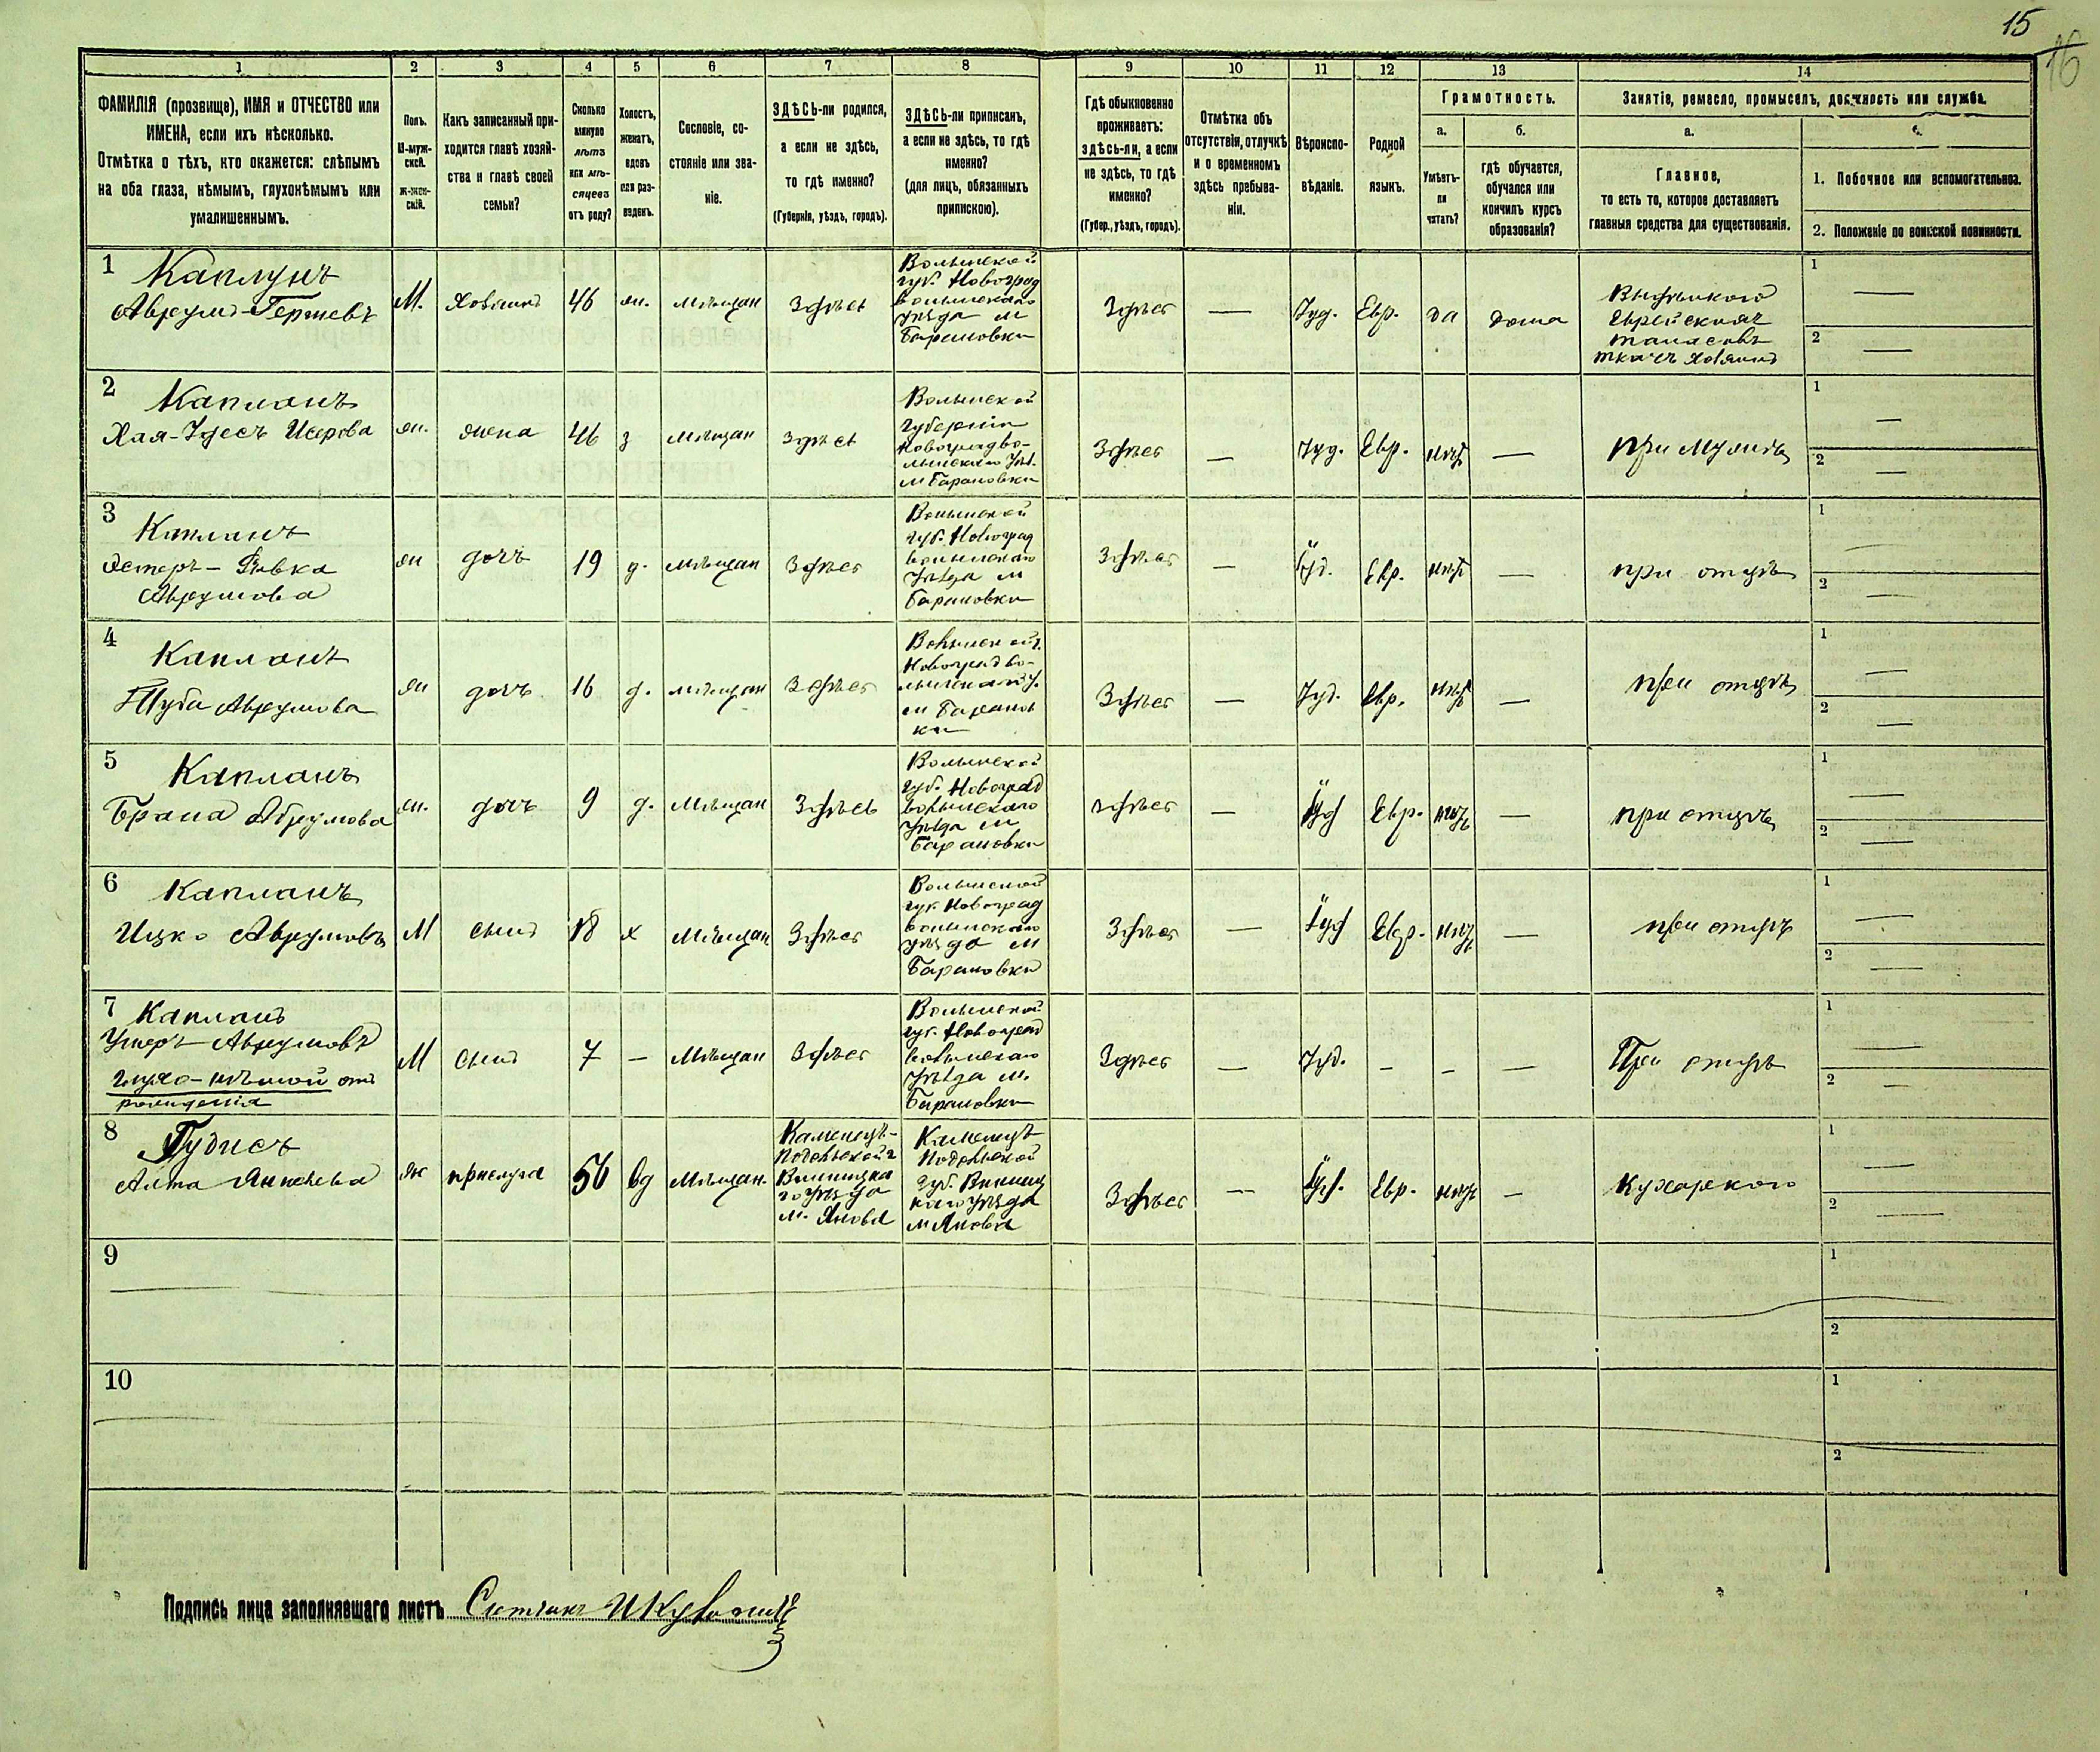 15
16
1 2 3 4 5 6 7 8 9 10 11 12 13 14
ФАМИЛІЯ (прозвище), ИМЯ и ОТЧЕСТВО или
ИМЕНА, если ихъ нѣсколько.
Отмѣтка о тѣхъ, кто окажется: слѣпымъ
на оба глаза, нѣмымъ, глухонѣмымъ или
умалишеннымъ.
Полъ.
М-муж-
ской.
ж-жен-
скій.
Какъ записанный при-
ходится главѣ хозяй-
ства и главѣ своей
семьи?
Сколько
минуло
лѣтъ
или мѣ-
сяцевъ
отъ роду?
Холостъ,
женатъ,
вдовъ
или раз-
веденъ.
Сословіе, со-
стояніе или зва-
ніе.
ЗДѢСЬ-ли родился,
а если не здѣсь,
то гдѣ именно?
(Губернія, уѣздъ, городъ).
ЗДѢСЬ-ли приписанъ,
а если не здѣсь, то гдѣ
именно?
(для лицъ, обязанныхъ
припискою).
Гдѣ обыкновенно
проживаетъ:
здѣсь-ли, а если
не здѣсь, то гдѣ
именно?
(Губер., уѣздъ, городъ).
Отмѣтка объ
отсутствіи, отлучкѣ
и о временномъ
здѣсь пребыва-
ніи.
Вѣроиспо-
вѣданіе.
Родной
языкъ.
Грамотность.
а.
Умѣетъ-
ли
читать?
б.
гдѣ обучается,
обучался или
кончилъ курсъ
образованія?
Занятіе, ремесло, промыселъ, должность или служба.
а.
Главное,
то есть то, которое доставляетъ
главныя средства для существованія.
1. Побочное или вспомогательное.
2. Положеніе по воинской повинности.
1
Каплунъ
Аврумъ-Гершевъ
М.
Хозяинъ
46
жн.
мѣщан
Здѣсь
Волынской
губ. Новоград
волынскаго
уѣзда м
Барановки
Здѣсь
—
Іуд.
Евр.
да
дома
Выдѣлкою
Еврейскихъ
талесовъ
ткачъ хозяинъ
1 —
2 —
2
Капланъ
Хая-Удесъ Исерова
жн.
жена
46
з
мѣщан
здѣсь
Волынской
губерніи
Новоградво-
лынскаго уѣз.
м Барановки
Здѣсь
—
Іуд.
Евр.
нѣтъ
—
при мужѣ
1 —
2 —
3
Капланъ
Эстеръ-Ривка
Аврумова
жн
дочь
19
д.
мѣщан
Здѣсь
Волынской
губ. Новоград
волынскаго
уѣзда м
Барановки
Здѣсь
—
Іуд.
Евр.
нѣтъ
—
при отцѣ
1 —
2 —
4
Капланъ
Аврумова
жн
дочь
16
д.
мѣщан
Здѣсь
Волынской г.
Новоград во-
лынскаго у.
м Баранов
ки
Здѣсь
—
Іуд.
Евр.
нѣтъ
—
при отцѣ
1 —
2 —
5
Капланъ
Аврумова
жн.
дочь
9
д.
Мѣщан
Здѣсь
Волынской
губ. Новоград
волынскаго
уѣзда м
Барановки
здѣсь
—
Іуд
Евр.
нѣтъ
—
при отцѣ
1 —
2 —
6
Капланъ
Ицко Аврумовъ
М
сынъ
18
х
Мѣщан
Здѣсь
Волынской
губ Новоград
волынскаго
уѣзда м
Барановки
Здѣсь
—
Іуд
Евр.
нѣтъ
—
при отцѣ
1 —
2 —
7
Капланъ
Ушеръ Аврумовъ
глухо-нѣмой отъ
рожденія
М
сынъ
7
—
Мѣщан
Здѣсь
Волынской
губ. Новоград
волынскаго
уѣзда м.
Барановки
Здѣсь
—
Іуд.
—
—
—
При отцѣ
1 —
2 —
8
Гудисъ
Алта Янкелева
жн
прислуга
56
вд
Мѣщан.
Каменецъ-
Подольской г
Винницка
го уѣзда
м. Янова
Каменецъ
Подольской
губ. Винниц
каго уѣзда
м Янова
Здѣсь
—
Іуд.
Евр.
нѣтъ
—
Кухаркою
1 —
2 —
9
1
2
10
1
2
Подпись лица заполнявшаго листъ Счетчикъ